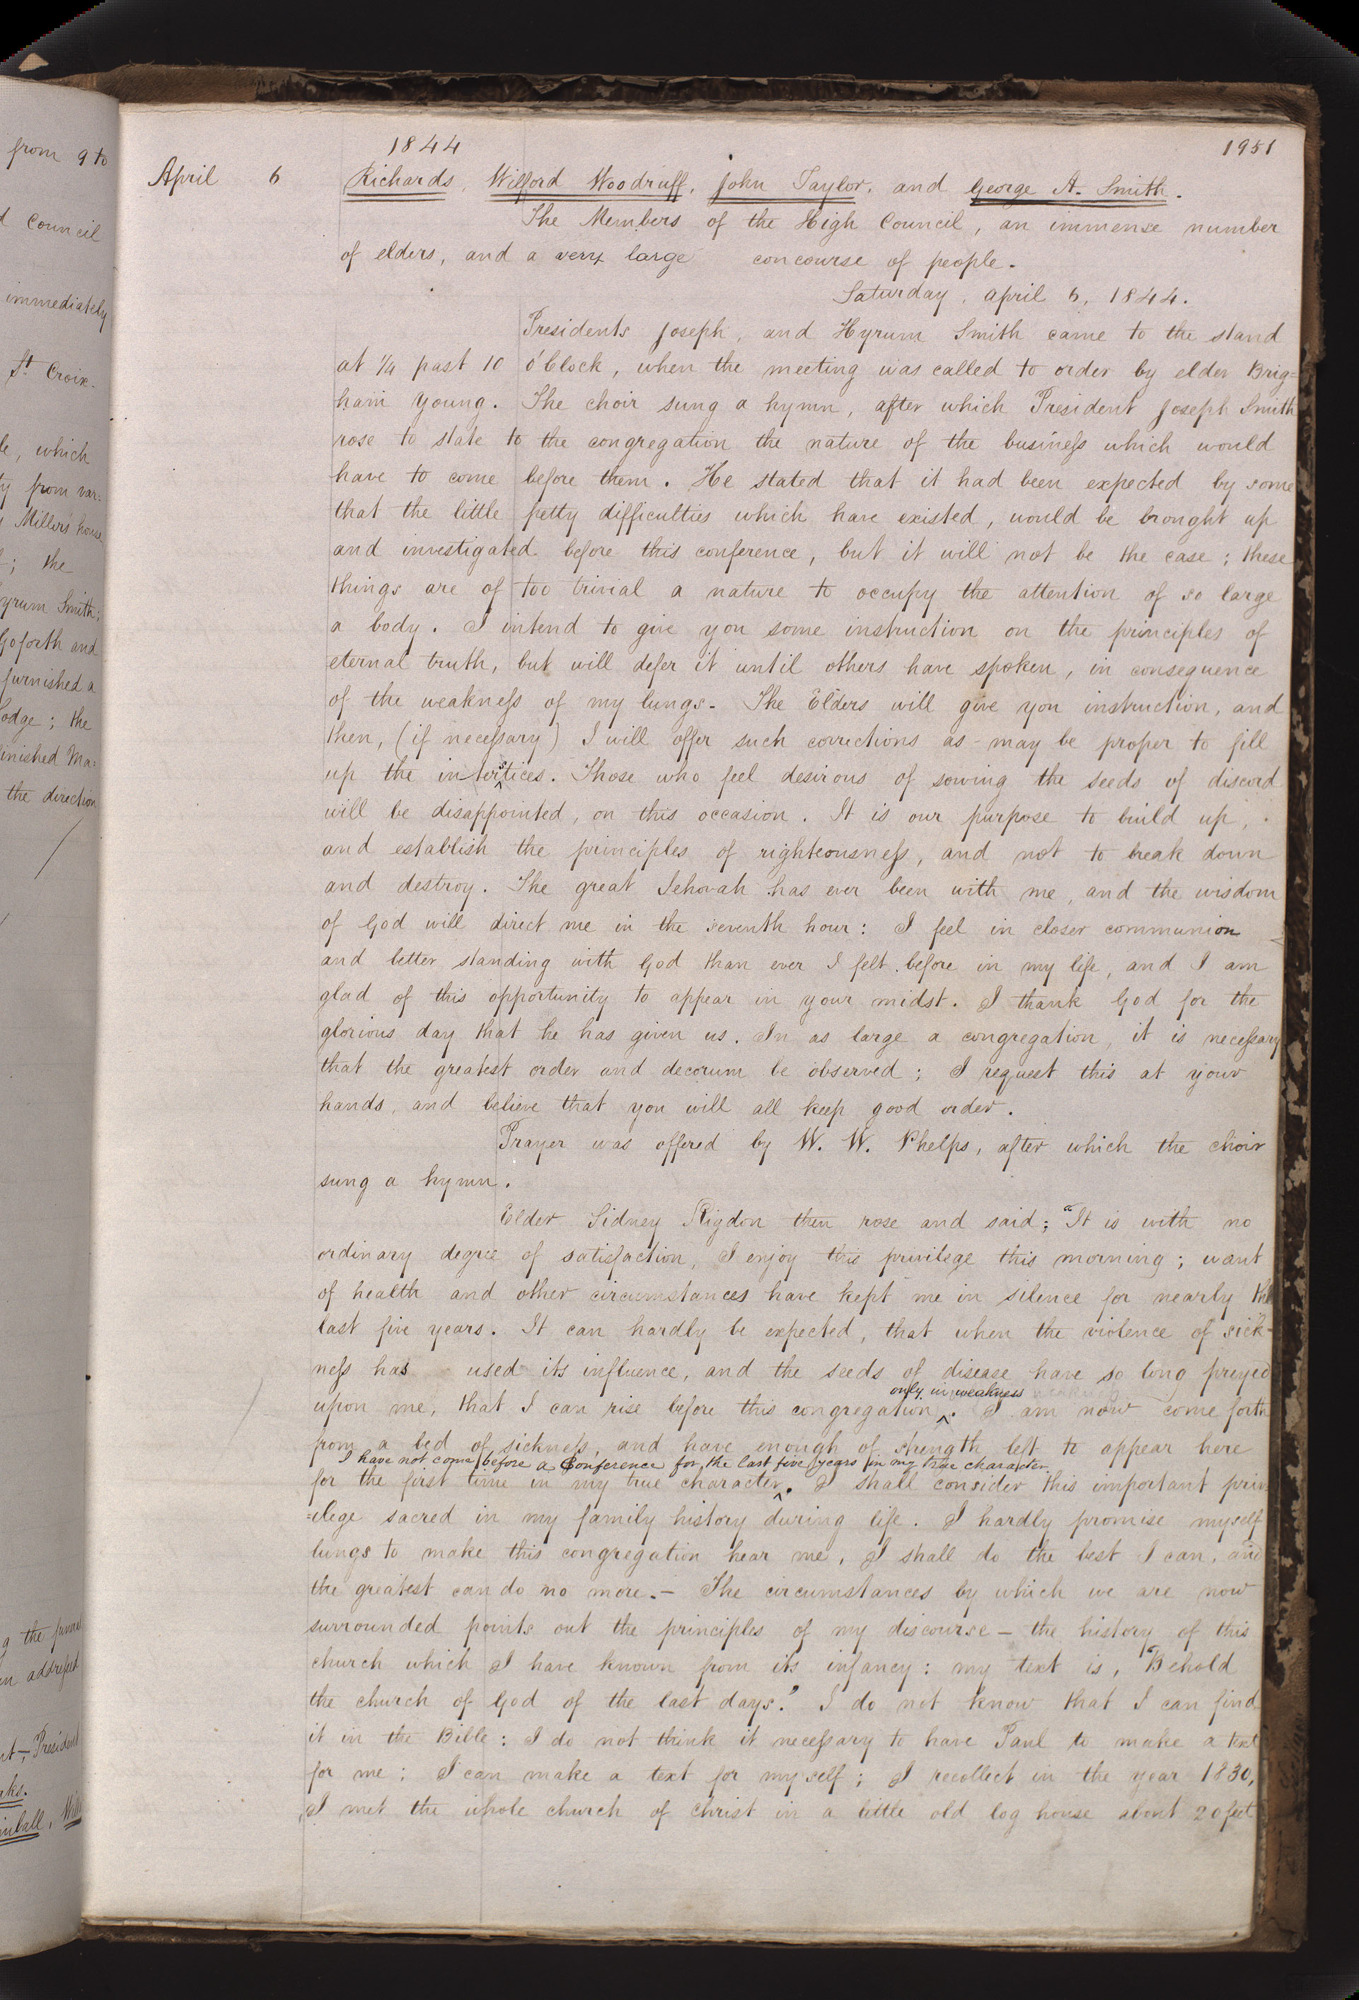 from 9 to
council
immediately
St Croix.
le, which
ty from var=
Miller's house
; the
yrum Smith;
Goforth and
furnished a
odge; the
inished Ma=
the direction
g the funeral
en addressed
nt — President
aks.
mball, Will
1844 1951
April 6 Richards, Wilford Woodruff, John Taylor, and George A. Smith.
The Members of the High Council, an immense number
of elders, and a very large concourse of people.
Saturday, April 6, 1844.
Presidents Joseph, and Hyrum Smith came to the stand
at ¼ past 10 o'Clock, when the meeting was called to order by elder Brig=
ham Young. The choir sung a hymn, after which President Joseph Smith
rose to state to the congregation the nature of the business which would
have to come before them. He stated that it had been expected by some
that the little petty difficulties which have existed, would be brought up
and investigated before this conference, but it will not be the case; these
things are of too trivial a nature to occupy the attention of so large
a body. I intend to give you some instruction on the principles of
eternal truth, but will defer it until others have spoken, in consequence
of the weakness of my lungs. The Elders will give you instruction, and
then, (if necessary) I will offer such corrections as may be proper to fill
up the interstices. Those who feel desirous of sowing the seeds of discord
will be disappointed, on this occasion. It is our purpose to build up,
and establish the principles of righteousness, and not to break down
and destroy. The great Jehovah has ever been with me, and the wisdom
of God will direct me in the seventh hour: I feel in closer communion
and better standing with God than ever I felt before in my life, and I am
glad of this opportunity to appear in your midst. I thank God for the
glorious day that he has given us. In as large a congregation, it is necessary
that the greatest order and decorum be observed; I request this at your
hands, and believe that you will all keep good order.
Prayer was offered by W. W. Phelps, after which the choir
sung a hymn.
Elder Sidney Rigdon then rose and said; "It is with no
ordinary degree of satisfaction, I enjoy this privilege this morning; want
of health and other circumstances have kept me in silence for nearly the
last five years. It can hardly be expected, that when the violence of sick-
ness has used its influence, and the seeds of disease have so long preyed
only in weakness
upon me, that I can rise before this congregation. I am now come forth
from a bed of sickness, and have enough of strength left to appear here
I have not come before a Conference for the last five years in my true character
for the first time in my true character. I shall consider this important priv
=ilege sacred in my family history during life. I hardly promise myself
lungs to make this congregation hear me, I shall do the best I can, and
the greatest can do no more.— The circumstances by which we are now
surrounded points out the principles of my discourse — the history of this
church which I have known from its infancy: my text is, "Behold
the church of God of the last days." I do not know that I can find
it in the Bible: I do not think it necessary to have Paul to make a text
for me; I can make a text for myself; I recollect in the year 1830,
I met the whole church of christ in a little old log house about 20 feet